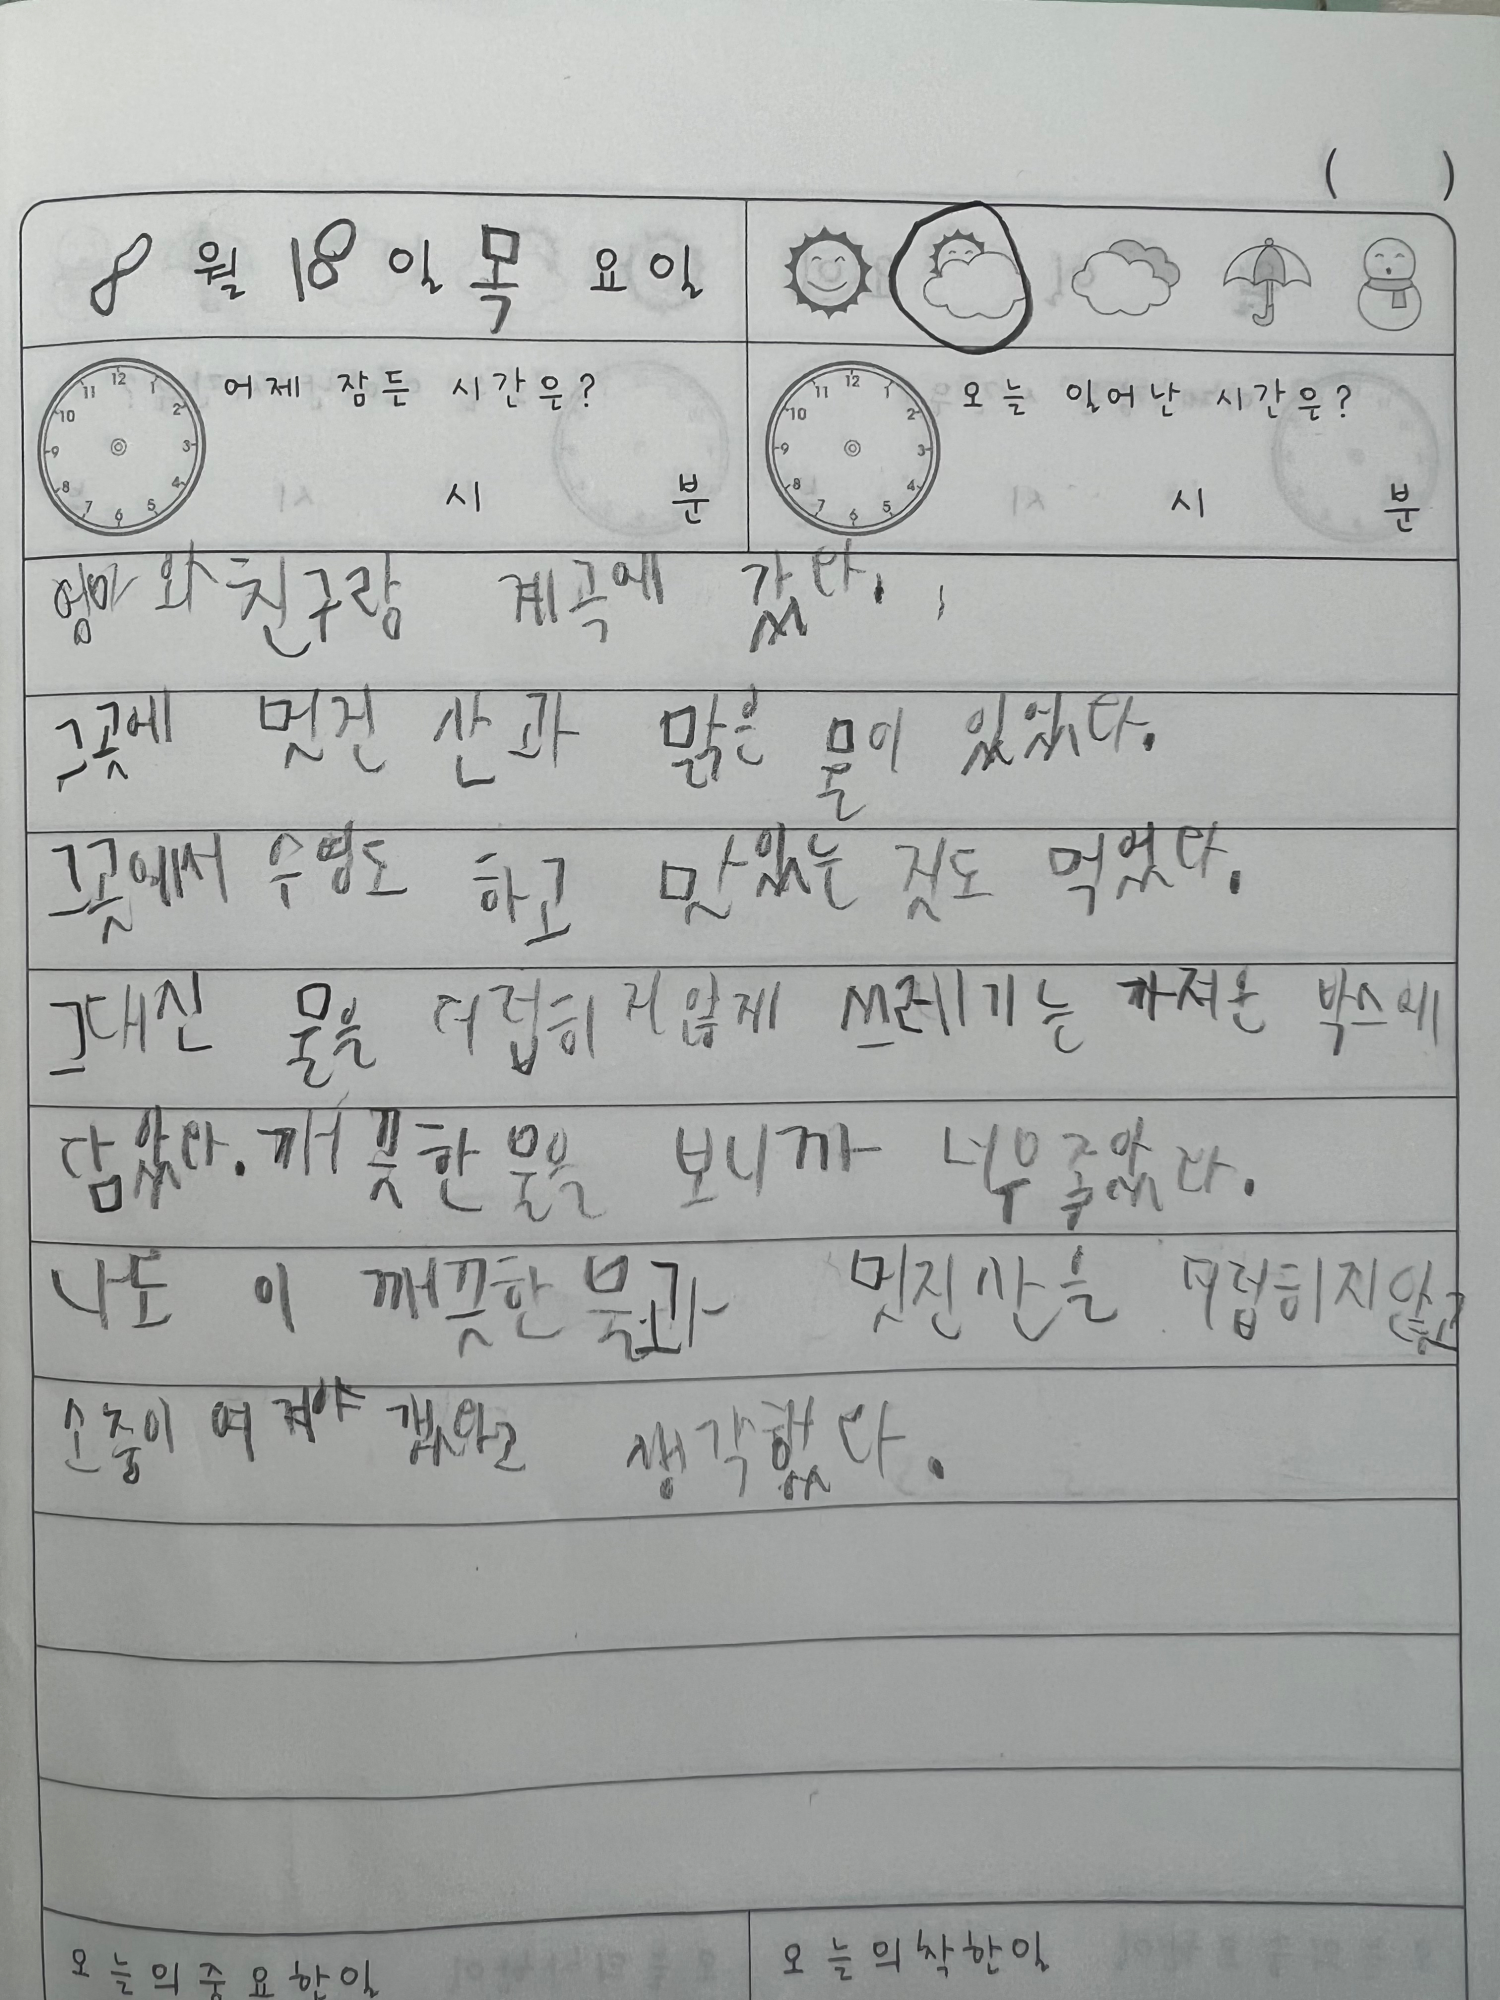 ( )
8 월 18 일 목 요일
어제 잠든 시간은?
시 분
오늘 일어난 시간은?
시 분
12 1 2 3 4 5 6 7 8 9 10 11
12 1 2 3 4 5 6 7 8 9 10 11
엄마와 친구랑 계곡에 갔다.
그곳에 멋진 산과 맑은 물이 있었다.
그곳에서 수영도 하고 맛있는 것도 먹었다.
그대신 물을 더럽히지않게 쓰레기는 가져온 박스에
담았다. 깨끗한 물을 보니까 너무 좋았다.
나도 이 깨끗한 물과 멋진 산을 더럽히지않고
소중이 여겨야 갰다고 생각했다.
오늘의중요한일
오늘의착한일